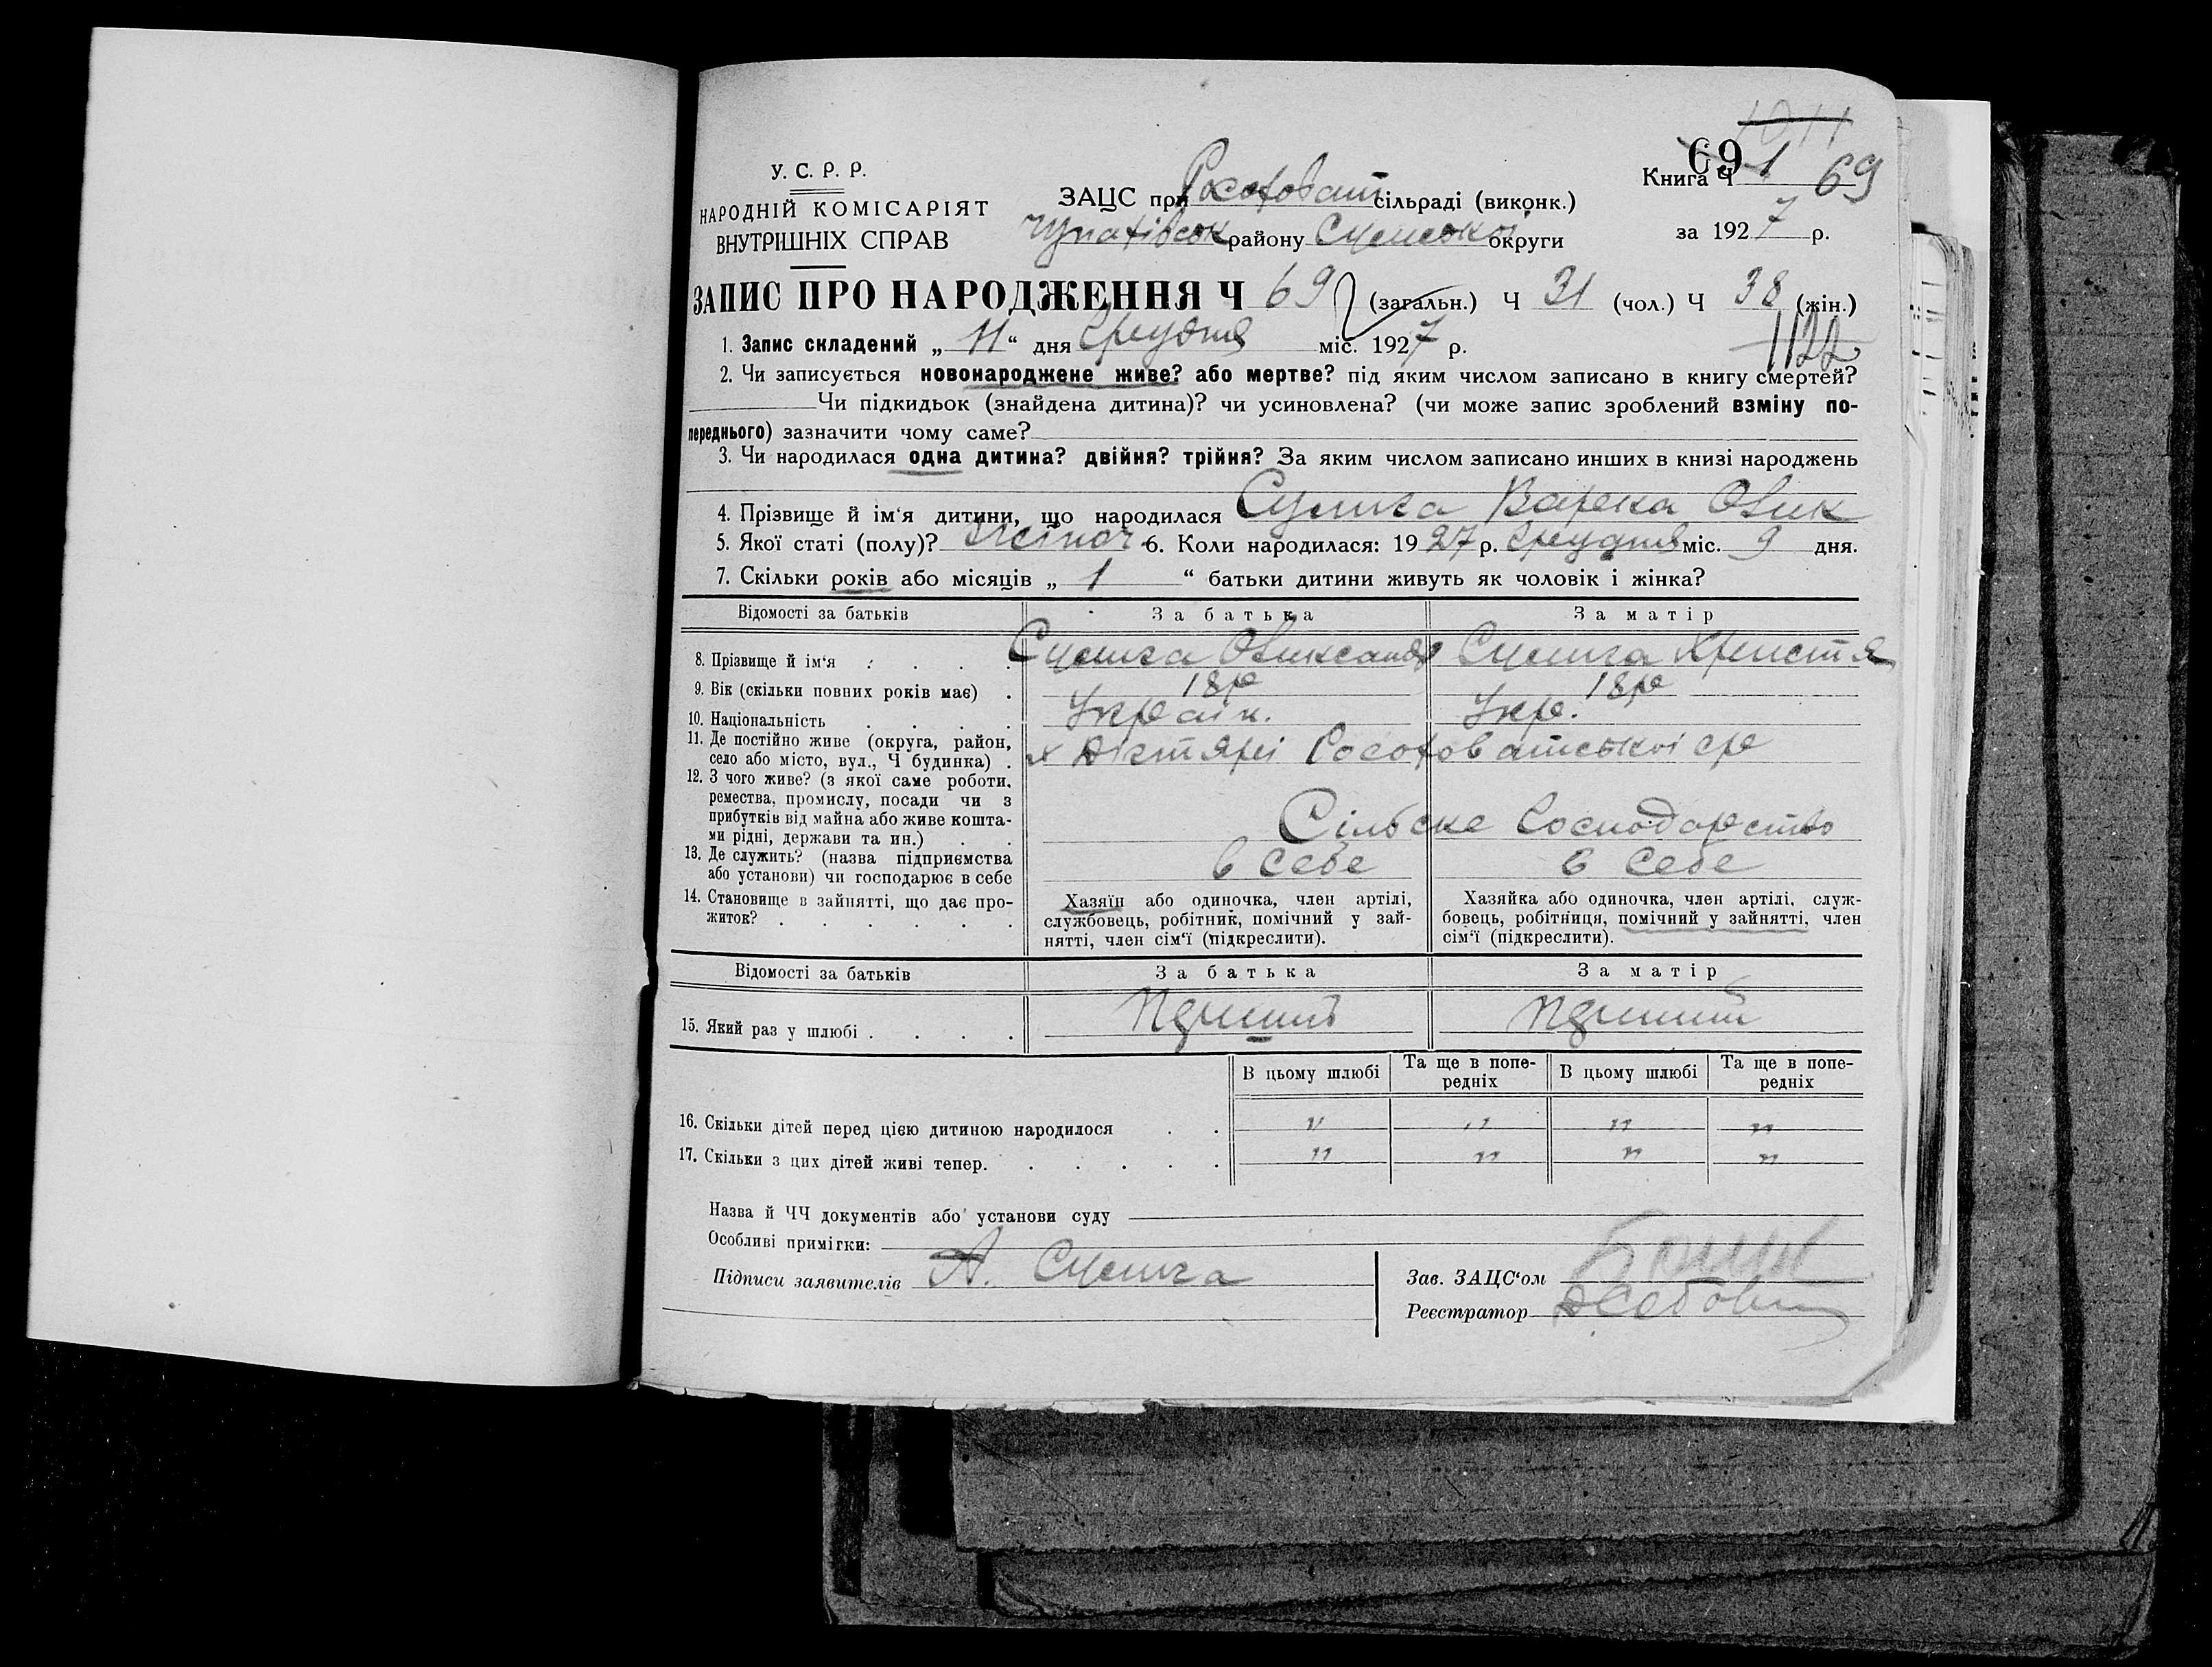 1011
69
У. С. Р. Р.
НАРОДНІЙ КОМІСАРІЯТ
ВНУТРІШНІХ СПРАВ
ЗАЦС при Росоховат сільраді (виконк.)
Чупахівськ району Сумської округи
Книга Ч 1 69
за 1927 р.
ЗАПИС ПРО НАРОДЖЕННЯ Ч 69 (загальн.) Ч 31 (чол.) Ч 38 (жін.)
1122
1. Запис складений „ 11 “ дня Грудня міс. 1927 р.
2. Чи записується новонароджене живе? або мертве? під яким числом записано в книгу смертей?
Чи підкидьок (знайдена дитина)? чи усиновлена? (чи може запис зроблений взміну по-
переднього) зазначити чому саме?
3. Чи народилася одна дитина? двійня? трійня? За яким числом записано инших в книзі народжень
4. Прізвище й ім‘я дитини, що народилася Сумига Варка
5. Якої статі (полу)? Жіноч 6. Коли народилася: 1927 р. Грудня міс. 9 дня.
7. Скільки років або місяців „ 1 “ батьки дитини живуть як чоловік і жінка?
Відомості за батьків За батька За матір
8. Прізвище й ім‘я Сумига Олександр Сумига Христя
9. Вік (скільки повних років має) 18р 18р
10. Національність Україн. Укр.
11. Де постійно живе (округа, район,
село або місто, вул., Ч будинка) х Дігтярі Росоховатської ср
12. З чого живе? (з якої саме роботи,
ремества, промислу, посади чи з
прибутків від майна або живе кошта-
ми рідні, держави та ин.) Сільске Господарство
13. Де служить? (назва підприємства
або установи) чи господарює в себе в себе в себе
14. Становище в зайнятті, що дає про-
житок?
Хазяїн або одиночка, член артілі,
службовець, робітник, помічний у зай-
нятті, член сім‘ї (підкреслити).
Хазяйка або одиночка, член артілі, служ-
бовець, робітниця, помічний у зайнятті, член
сім‘ї (підкреслити).
Відомості за батьків За батька За матір
15. Який раз у шлюбі
В цьому шлюбі Та ще в попе-
редніх В цьому шлюбі Та ще в попе-
редніх
16. Скільки дітей перед цією дитиною народилося " " " "
17. Скільки з цих дітей живі тепер. " " " "
Назва й ЧЧ документів або установи суду
Особливі примітки:
Підписи заявителів А. Сумига
Зав. ЗАЦС‘ом
Реєстратор